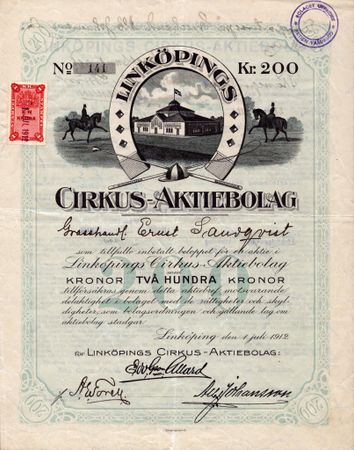 200
LINKÖPINGS CIRKUS-AKTIEBOLAG
200
No 141
Kr. 200
LINKÖPINGS
CIRKUS-AKTIEBOLAG
Grosshandl. Ernst Sandqvist
som tillfullo inbetalt beloppet för en aktie i
Linköpings Cirkus-Aktiebolag
KRONOR TVÅ HUNDRA KRONOR
tillförsäkras genom detta aktiebref motsvarande
delaktighet i bolaget med de rättigheter och skyl-
digheter, som bolagsordningen och gällande lag om
aktiebolag stadgar.
Linköping den 1 juli 1912.
för LINKÖPINGS CIRKUS-AKTIEBOLAG:
Johansson
200
200